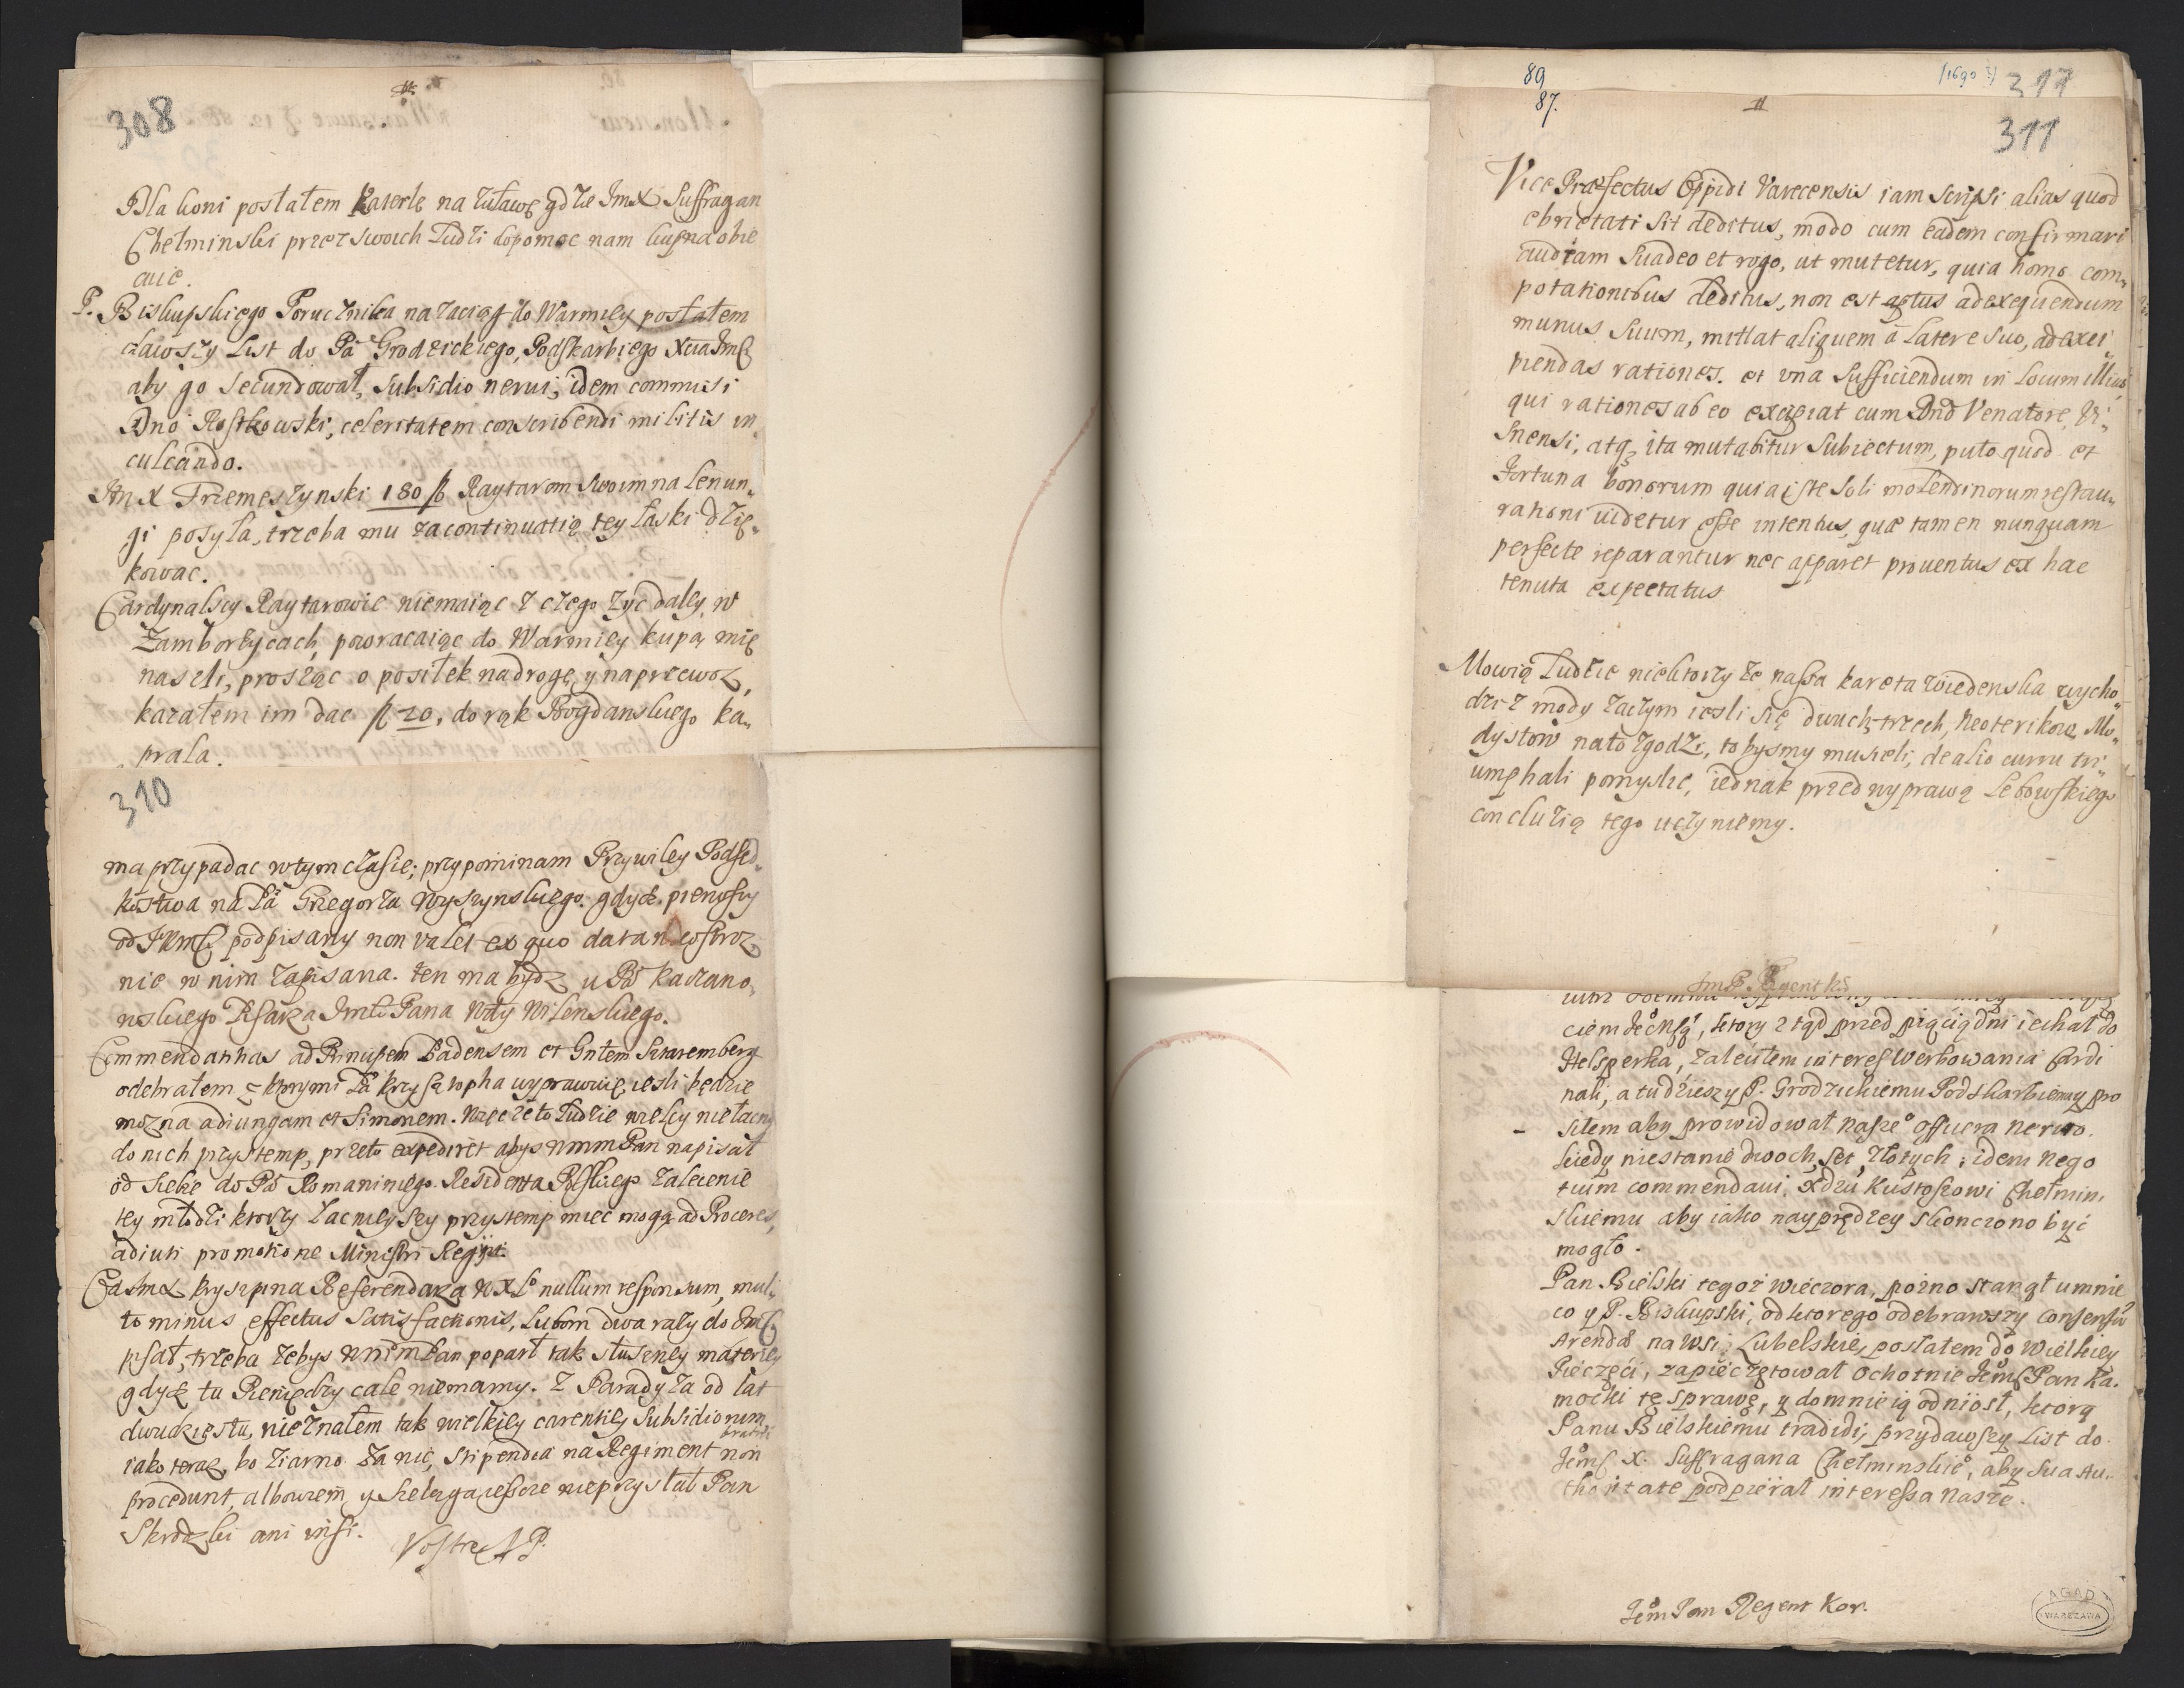 308
Dla koni posłałem Katerlę na Zuławę gdzie JmX Suffragan
Chełminski przez swoich Ludzi dopomoc nam kupna obie
cuie.
P. Biskupskiego Porucznika na zaciąg do Warmiey posłałem
dawszy List do Pa Grodzickiego, Podskarbiego Xcia Jmści
aby go secundował, subsidio nerui, idem commisi
Dno Rostkowski, celeritatem conscribendi militis in„
culcando.
Jm X Trzemeszynski 180 fl Raytarom swoim na Lenun„
gi posyła, trzeba mu za continuatią tey łaski dzię„
kowac.
Cardynalscy Raytarowie niemaiąc z czego zyc daley w
Zamborzycach, powracaiąc do Warmiey kupą mię
naszli, prosząc o posiłek na drogę y na przewoz,
kazałem im dac fl 20, do rąk Bogdanskiego ka„
prala.
310
ma przypadac w tym czasie; przypominam Przywiley Podsęd„
kostwa na Pa Grzegorza Wyszynskiego. gdyż pierwszy
od JKMści podpisany non valet ex quo data nieostroz
nie w nim zapisana. ten ma bydz u Pa Kaczano„
wskiego Pisarza Jmci Pana Wdy Wilenskiego.
Commendatitias ad Principem Badensem et Gntem Staremberg
odebrałem z ktorymi Pa Krysztopha wyprawuię, iesli będzie
mozna adiungam et Simonem. Więc ze to Ludzie wielcy niełacny
do nich przystemp, przeto expediret abys WmmPan napisał
od siebie do Pa Romaniniego Residenta Polskiego zalecenie
tey młodzi ktorzy łacnieyszy przystemp miec mogą ad Proceres,
adiuti promotione Ministri Regii.
Od JmX Kryszpina Referendarza WXLo nullum responsum, mul„
to minus effectus satisfactionis, lubom dwa razy do Jmści
pisał, trzeba zebys WmmPan poparł tak słuszney materiey
gdyż tu Pieniędzy cale niemamy. Z Parady za od lat
dwudziestu, nieznałem tak wielkiey carentiey subsidiorum,
iako teraz, bo ziarno za nic, stipendia na Regiment non
procedunt, albowiem y szelęga ieszcze nieprzysłał Pan
Skrodzki ani insi. Vostre A P.
89
87.
(1690 ?) 317
311
Vice Præfectus Oppidi Varecensis iam scripsi alias quod
ebrietati sit deditus, modo cum eadem confirmari
audiam suadeo et rogo, ut mutetur, quia homo com„
potationibus deditus, non est aptus ad exequendum
munus suum, mittat aliquem à latere suo, ad exci„
piendas rationes. et una sufficiendum in locum illius,
qui rationes ab eo excipiat cum Dno Venatore Vi„
snensi, atq3 ita mutabitur Subiectum, puto quod et
Fortuna bonorum quia iste soli molendinorum restau„
rationi uidetur esse intentus, quæ tamen nunquam
perfecte reparantur nec apparet prouentus ex hac
tenuta expectatus
Mowią Ludzie niektorzy ze nasza kareta wiedenska wycho„
dzi z mody zaczym iesli się dwuch, trzech, Neoterikow Mo„
dystow na to zgodzi, to bysmy musieli, de alio curru tri„
umphali pomyslic, iednak przed wyprawą Lebowskiego
concluzią tego uczyniemy.
JmP. Regent Ko
ciem JeoMsą, ktory z tąd przed pięcią dni iechał do
Helsperka, zaleciłem interes werbowania Cardi
nali, a tudzieszy P. Grodzickiemu Podskarbiemu pro
siłem aby prowidował naszeo officera nerwo.
kiedy niestanie dwoch set, złotych; idem nego
tium commendaui, Xdzu Kustoszowi Chełmin„
skiemu aby iako nayprędzey skonczono być
mogło.
Pan Bielski tegoż wieczora, pozno stanął umnie
co y P. Biskupski, od ktorego odebrawszy consensu
Arendæ na wsi Lubelskie, posłałem do Wielkiey
Pieczęći, zapieczętował ochotnie Jeomś Pan Ka„
mocki tę sprawę, y do mnie ią odniosł, ktorą
Panu Bielskiemu tradidi, przydawszy List do
Jeomś X. Suffragana Chełminskieo, aby sua Au„
thoritate podpierał interessa nasze.
Jeom Pan Regent Kor.
AGAD
WARSZAWA